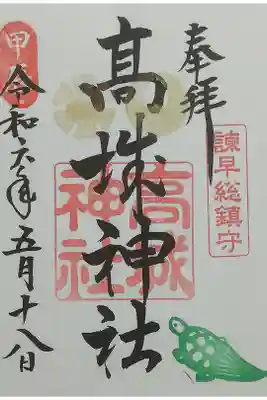 奉拝
諫早総鎮守
高城神社
高城神社
甲
令和六年五月十八日